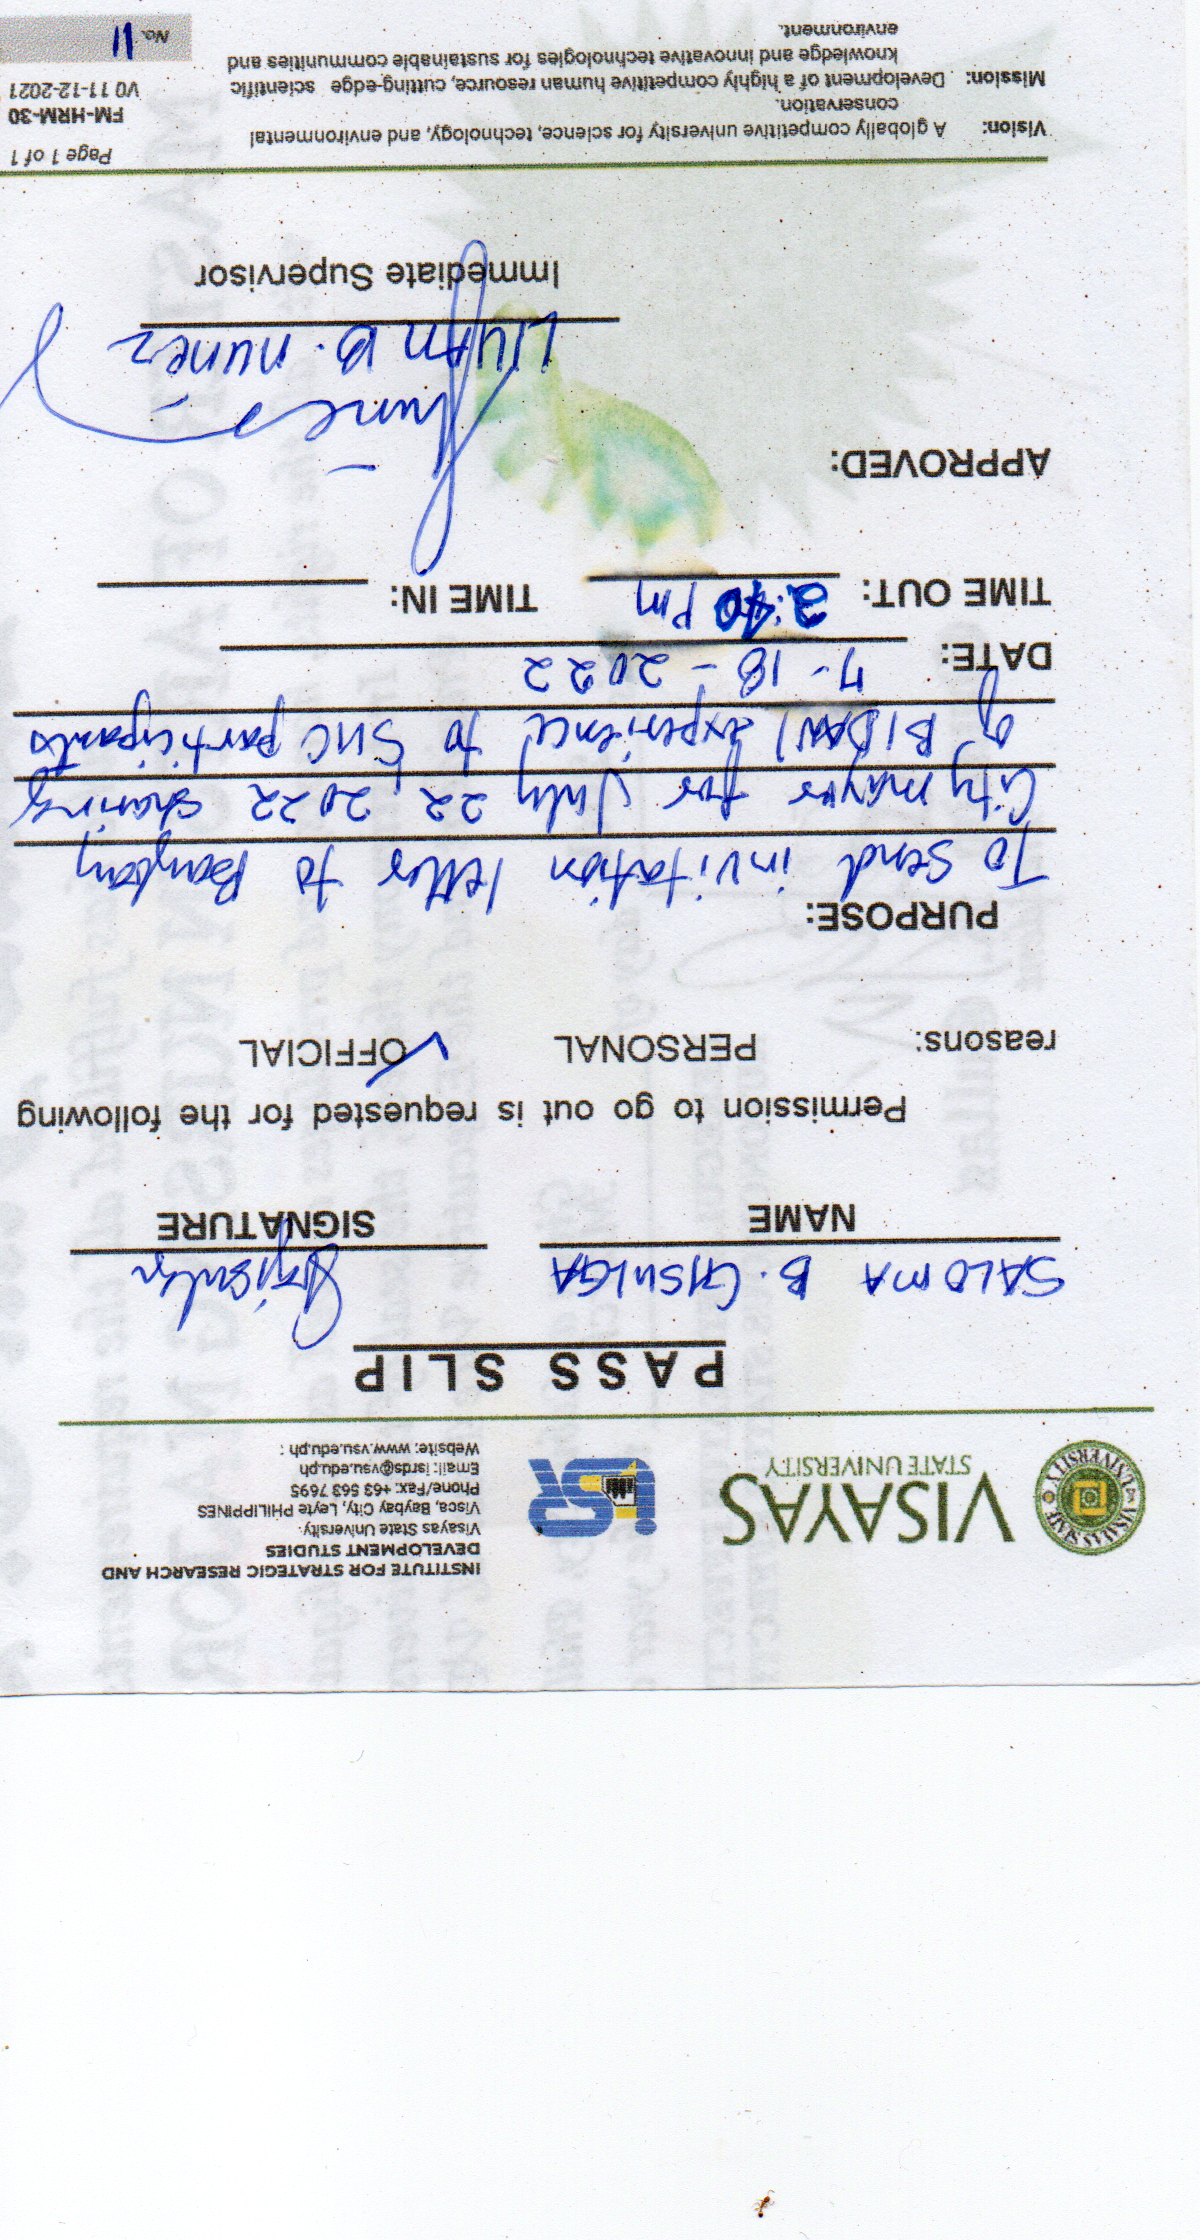 VISAYAS
STATE UNIVERSITY
VISAYAS STATE UNIVERSITY
iSR
INSTITUTE FOR STRATEGIC RESEARCH AND
DEVELOPMENT STUDIES
Visayas State University
Visca, Baybay City, Leyte PHILIPPINES
Phone/Fax: +63 563 7695
Email: isrds@vsu.edu.ph
Website: www.vsu.edu.ph :
PASS SLIP
SALOMA B. GISULGA
NAME SIGNATURE
Permission to go out is requested for the following
reasons: PERSONAL OFFICIAL
PURPOSE:
To send invitation letter to Baybay
City mayor for July 22, 2022 sharing
of BIDANI experience to SUC participants
DATE: 7-18-2022
TIME OUT: 2:40 pm TIME IN:
APPROVED:
Lilian B. nunez
Immediate Supervisor
Vision: A globally competitive university for science, technology, and environmental
conservation.
Mission: Development of a highly competitive human resource, cutting-edge scientific
knowledge and innovative technologies for sustainable communities and
environment.
Page 1 of 1
FM-HRM-30
V0 11-12-2021
No. 11